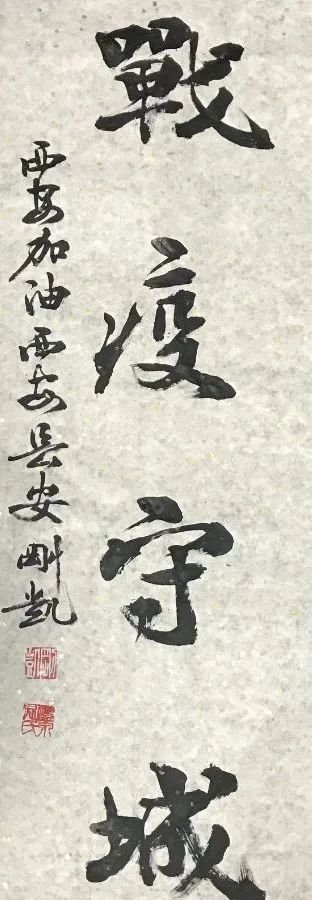 戰疫守城
西安加油西安長安剛凱